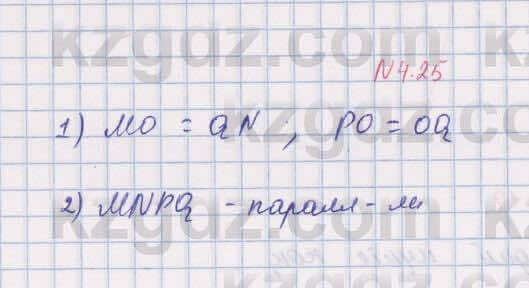 kzgdz.com
N4.25
1) MO = QN ; PO = OQ
2) MNPQ - паралл - ли